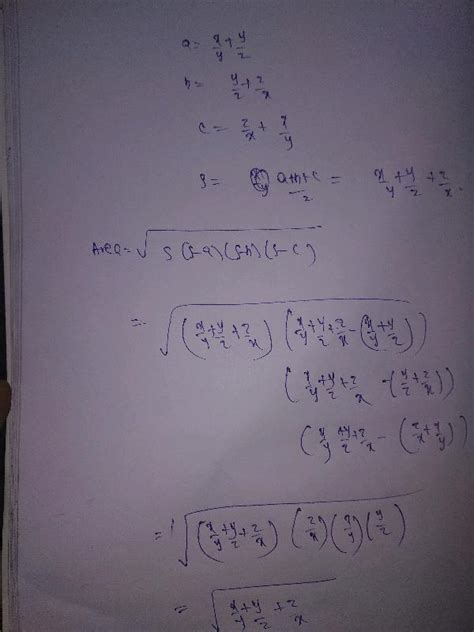 a = x/y + y/z
b = y/z + z/x
c = z/x + x/y
S = a+b+c/2 = x/y + y/z + z/x.
Area = √S(S-a)(S-b)(S-c)
= √(x/y + y/z + z/x) (x/y + y/z + z/x - (x/y + y/z))
(x/y + y/z + z/x - (y/z + z/x))
(x/y + y/z + z/x - (z/x + x/y))
= √(x/y + y/z + z/x) (z/x) (x/y) (y/z)
= √x/y + y/z + z/x